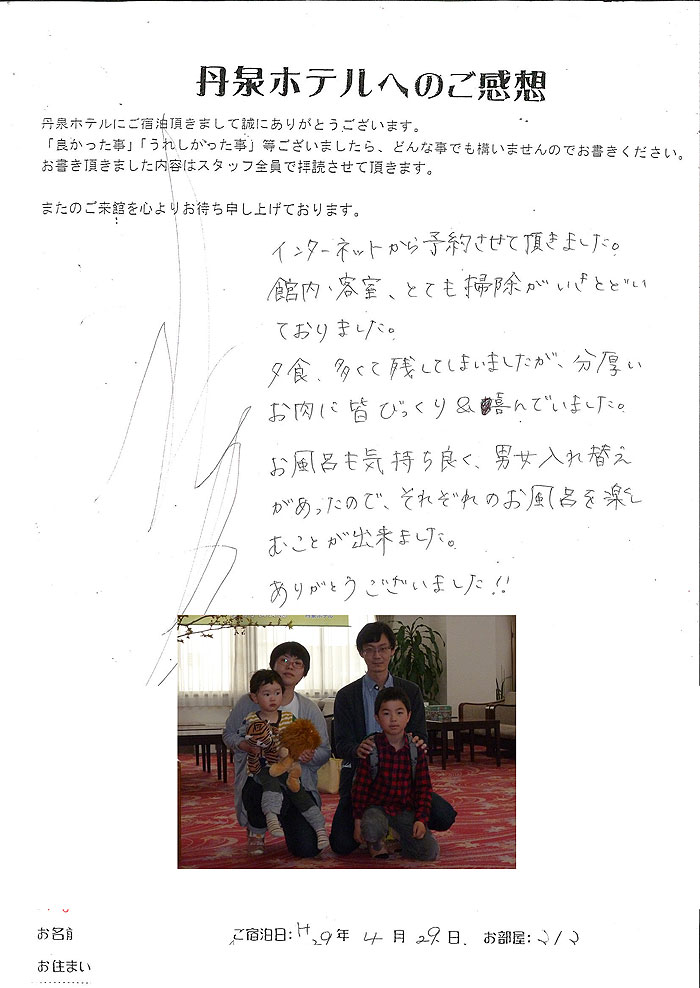 丹泉ホテルへのご感想
丹泉ホテルにご宿泊頂きまして誠にありがとうございます。
「良かった事」「うれしかった事」等ございましたら、どんな事でも構いませんのでお書きください。
お書き頂きました内容はスタッフ全員で拝読させて頂きます。
またのご来館を心よりお待ち申し上げております。
インターネットから予約させて頂きました。
館内・客室、とても掃除がいきとどい
ておりました。
夕食、多くて残してしまいましたが、分厚い
お肉に皆びっくり&喜んでいました。
お風呂も気持ち良く、男女入れ替え
があったので、それぞれのお風呂を楽し
むことが出来ました。
ありがとうございました!!
お名前
ご宿泊日:H29年 4月 29日. お部屋:212
お住まい